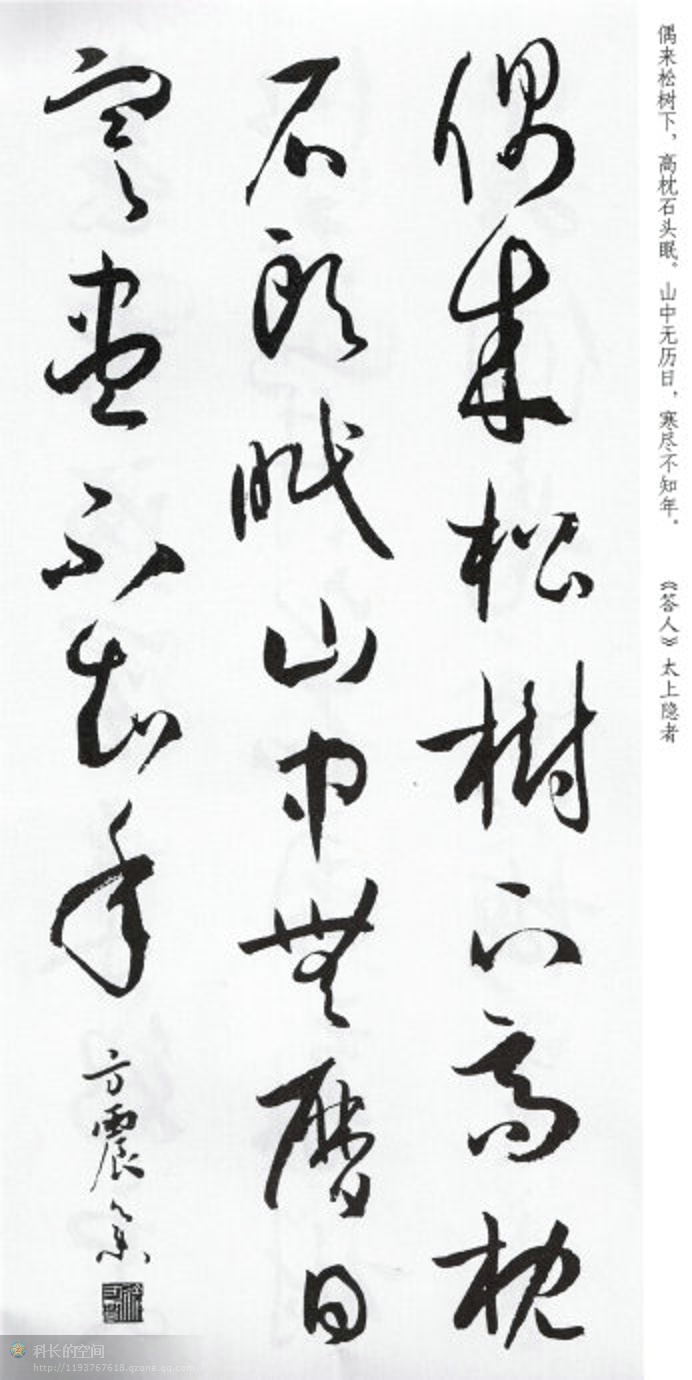 偶来松樹下高枕
石頭眠山中無曆日
寒盡不知年
方震集
偶来松树下，高枕石头眠。山中无历日，寒尽不知年。 《答人》太上隐者
科长的空间
http://1193767618.qzone.qq.com